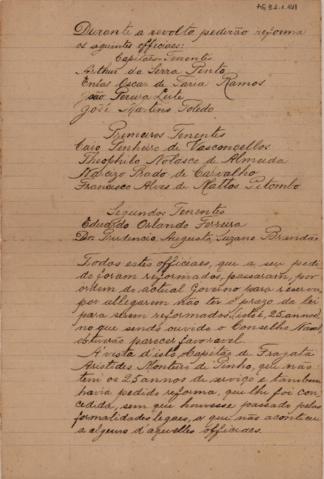 Durante a revolta pedirão reforma
os seguintes officiaes:
Capitães-Tenentes
Arthur da Serra Pinto
Eneas Oscar de Faria Ramos
João Pereira Leite
José Martins Toledo
Primeiros Tenentes
Caio Pinheiro de Vasconcellos
Theophilo Nolasco de Almeida
Narcizo Prado de Carvalho
Francisco Alves de Mattos Pitombo
Segundos Tenentes
Eduardo Orlando Ferreira
Dor Prudencio Augusto Suzano Brandão
Todos estes officiaes, que a seu pedi-
do foram reformados, passaram, por
ordem do actual Governo para reserva
por allegarem não ter o prazo da lei
para serem reformados, isto é, 25 annos,
no que sendo ouvido o Conselho Naval
parecer favoravel.
A vista d'isto, Capitão de Fragata
Aristides Monteiro de Pinho, que não
tem os 25 annos de serviço e tambem
havia pedido reforma, que lhe foi con-
cedida, sem que houvesse passado pelas
formalidades legaes, o que não aconteceu
a alguns d'aquelles officiaes.